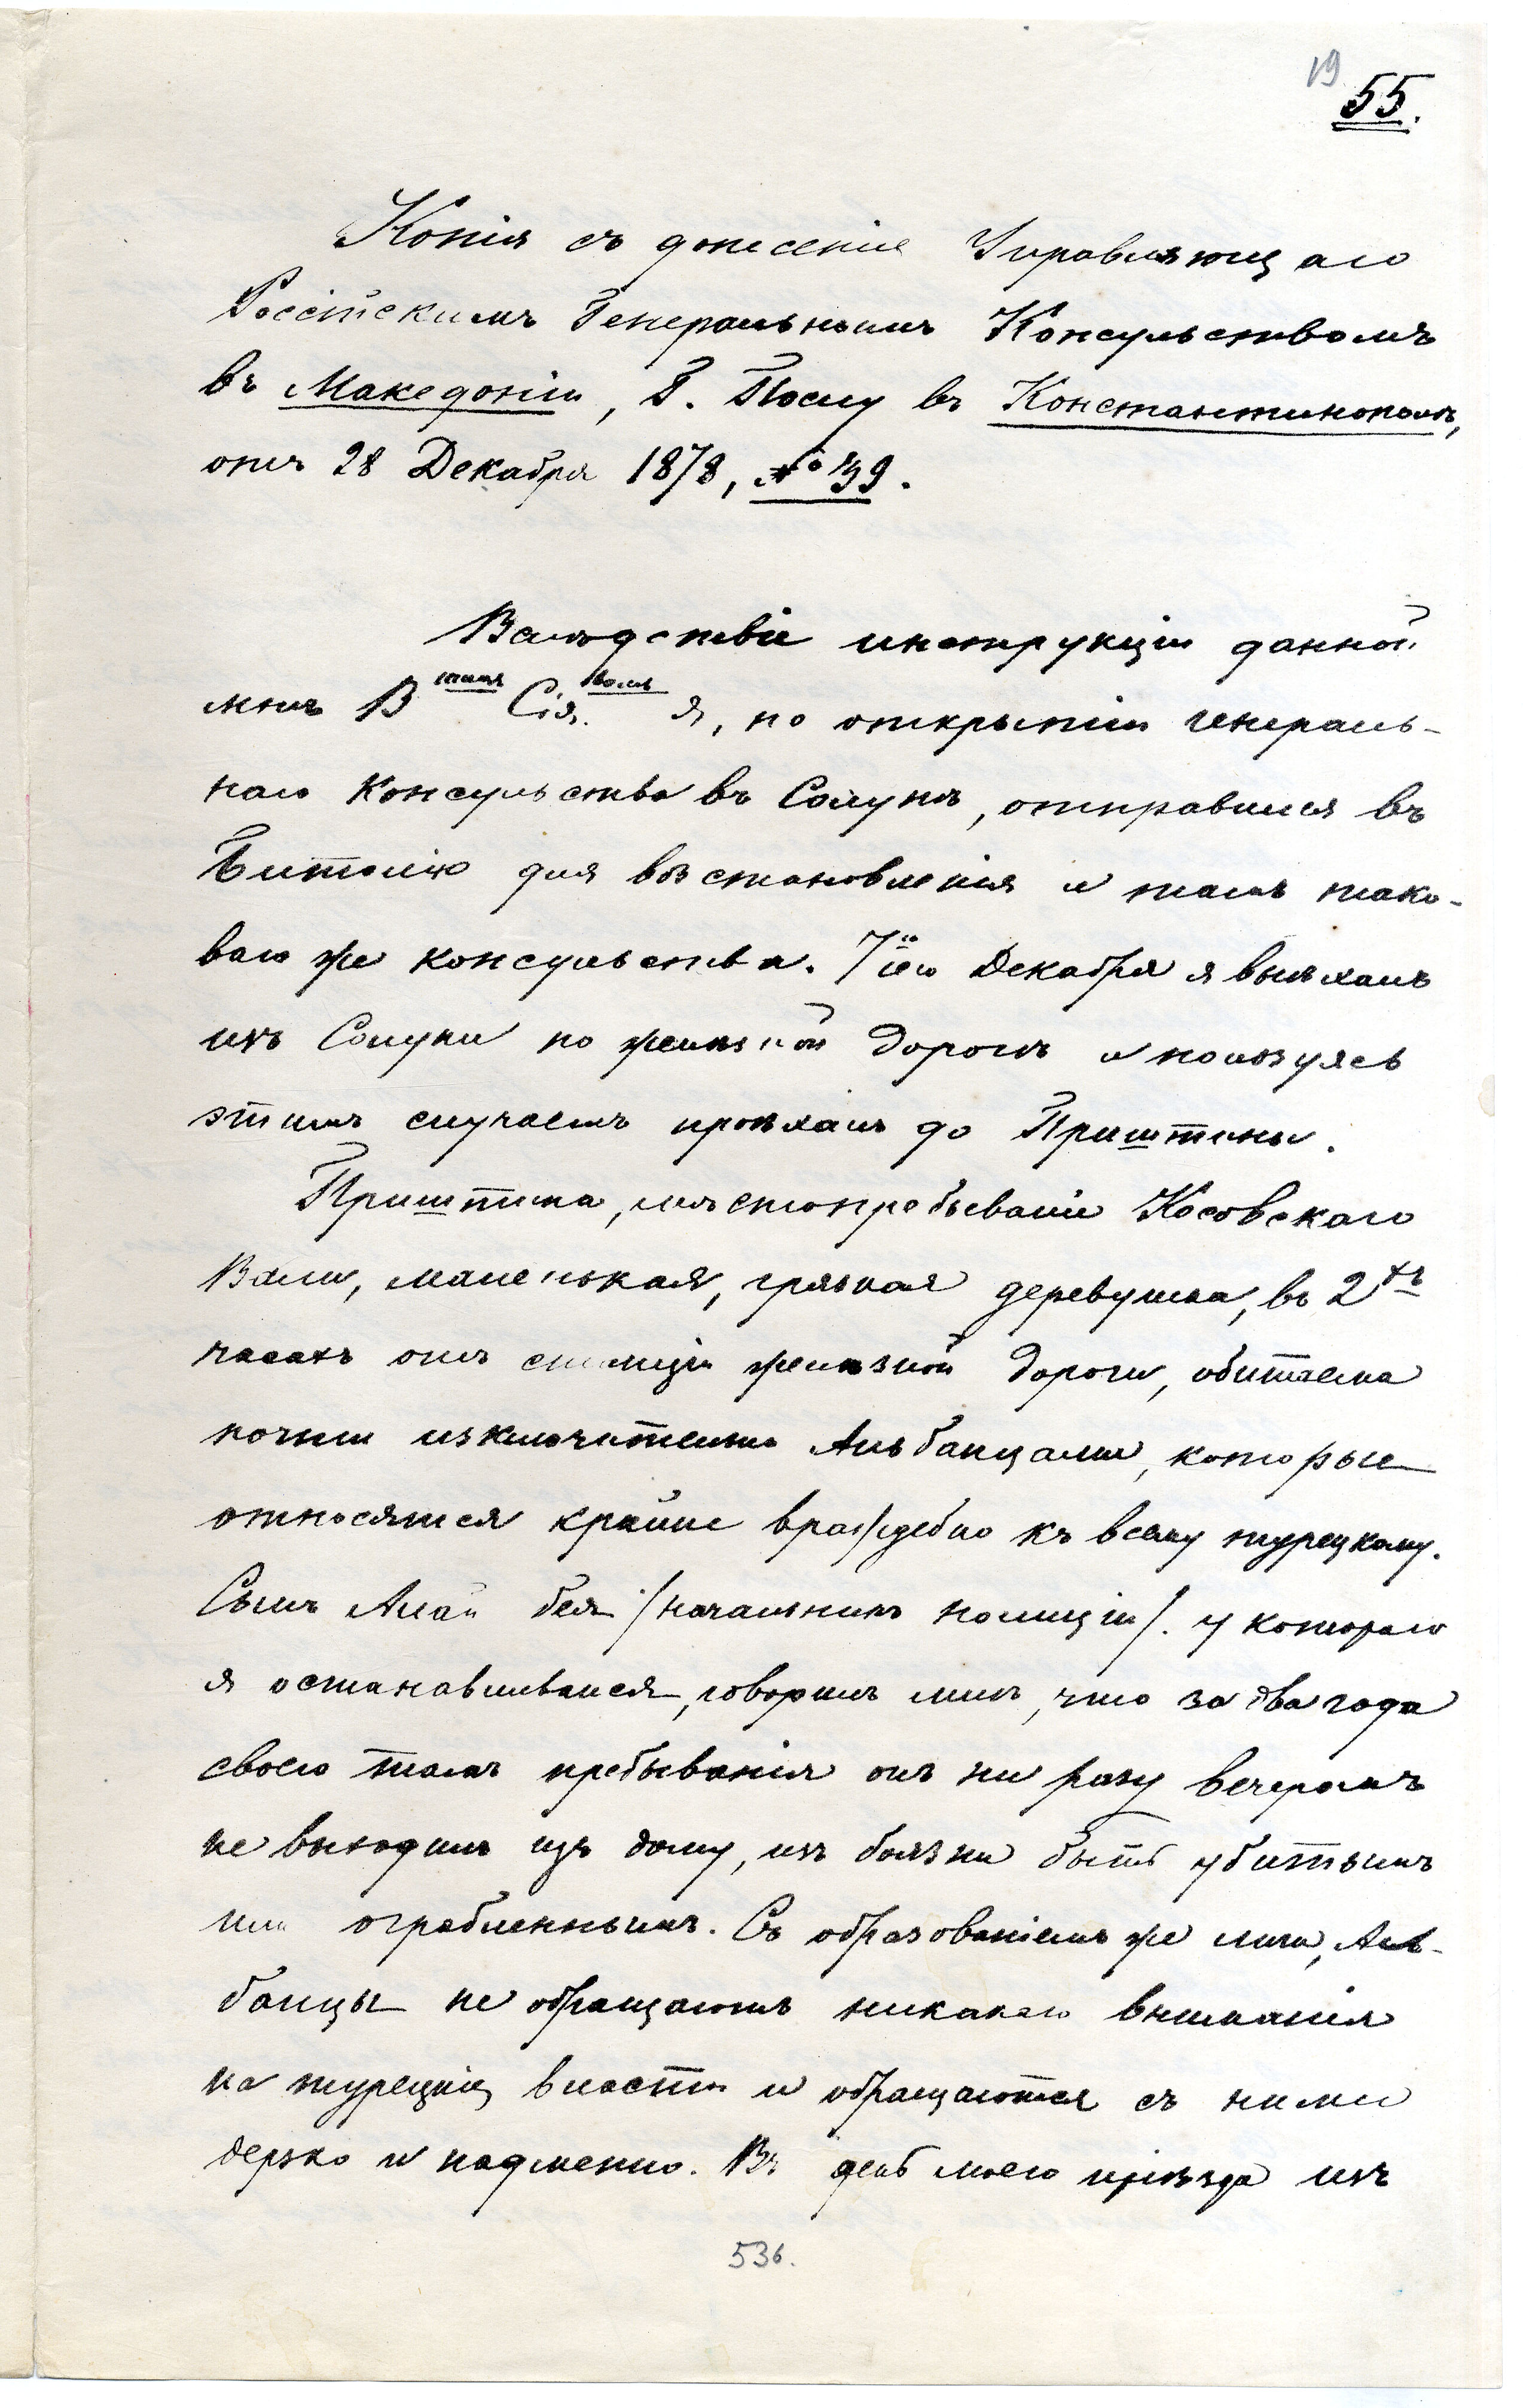 19
55.
Копія съ донесенія Управляющаго
Россійскимъ Генеральнымъ Консульствомъ
въ Македоніи, Г. Послу въ Константинополѣ,
отъ 28 Декабря 1878, № 39.
Вслѣдствіе инструкціи данной
мнѣ В Сія. я, по открытіи генераль-
наго Консульства въ Солунѣ, отправился въ
Битолію для возстановленія и тамъ тако-
ваго же консульства. 7го Декабря я выѣхалъ
изъ Солуни по желѣзной дорогѣ и пользуясь
этимъ случаемъ проѣхалъ до Приштины.
Приштина, мѣстопребываніе Косовскаго
Вали, маленькая, грязная деревушка, въ 2хъ
часахъ отъ станціи желѣзной дороги, обитаема
почти изключительно Альбанцами, которые
относятся крайне враждебно къ всему турецкому.
Сынъ Алай бея /начальникъ полиціи/. у котораго
я останавливался, говорилъ мнѣ, что за два года
своего тамъ пребыванія онъ ни разу вечеромъ
не выходилъ изъ дому, изъ боязни быть убитымъ
или ограбленнымъ. Съ образованіемъ же лиги, Аль-
банцы не обращаютъ никакаго вниманія
на турецкія власти и обращаются съ ними
дерзко и надменно. Въ день моего пріѣзда изъ
536.